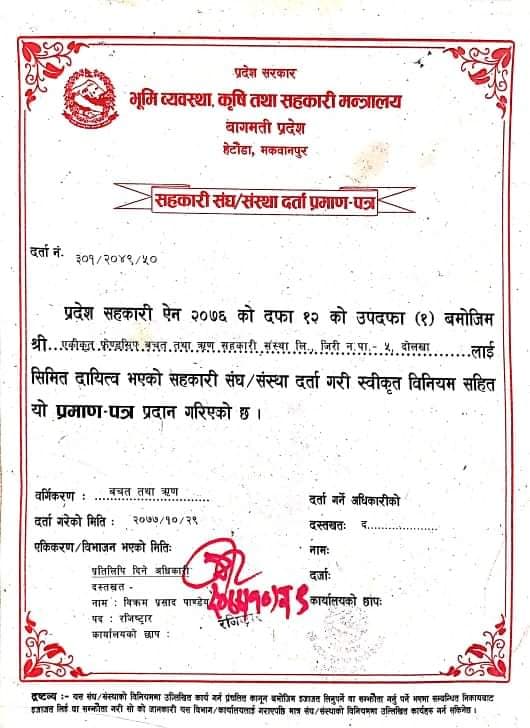 प्रदेश सरकार
भूमि व्यवस्था, कृषि तथा सहकारी मन्त्रालय
बागमती प्रदेश
हेटौडा, मकवानपुर
सहकारी संघ/संस्था दर्ता प्रमाण-पत्र
दर्ता नं. ३०१/२०४९/५०
प्रदेश सहकारी ऐन २०७६ को दफा १२ को उपदफा (१) बमोजिम
श्री...एकीकृत फेण्डसिप बचत तथा ऋण सहकारी संस्था लि., जिरी न.पा.- ५, दोलखा......लाई
सिमित दायित्व भएको सहकारी संघ/संस्था दर्ता गरी स्वीकृत विनियम सहित
यो प्रमाण-पत्र प्रदान गरिएको छ ।
वर्गिकरण : बचत तथा ऋण
दर्ता गर्ने अधिकारीको
दर्ता गरेको मिति : २०७७/१०/२९
दस्तखतः द..................
एकिकरण/विभाजन भएको मितिः
नामः
प्रतिलिपि दिने अधिकारी
दर्जाः
दस्तखत -
नाम : विक्रम प्रसाद पाण्डेय
कार्यालयको छापः
पद : रजिष्ट्रार
कार्यालयको छाप :
द्रष्टव्य :- यस संघ/संस्थाको विनियममा उल्लिखित कार्य गर्न प्रचलित कानून बमोजिम इजाजत लिनुपर्ने वा सम्झौता गर्नु पर्ने भएमा सम्बन्धित निकायबाट
इजाजत लिई वा सम्झौता गरी सो को जानकारी यस विभाग/कार्यालयलाई गराएपछि मात्र संघ/संस्थाको विनियममा उल्लिखित कार्यहरु गर्न सकिनेछ ।